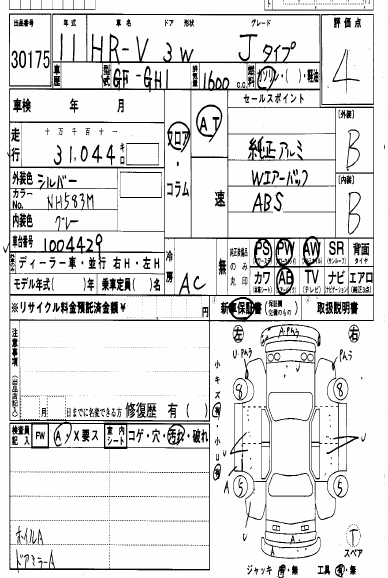 出品番号 年式 車名 ドア 形状 グレード 評価点
30175 11 HR-V 3 W Jタイプ 4
車歴 型式 GF-GH1 排気量 1600 c.c. 燃料 ガソリン・( )・軽油
車検 年 月 セールスポイント
走行 十万千百十一 31,044 キロ フロア・コラム AT 速
純正アルミ
Wエアーバック
ABS
[外装] B
[内装] B
外装色 シルバー
カラーNo. NH583M
内装色 グレー
車台番号 1004429
冷房 AC
無 純正装備品のみ記入 PS PW AW SR 背面タイヤ
カワ AB TV ナビ エアロ
ディーラー車・並行 右H・左H
モデル年式( )年 乗車定員( )名
※リサイクル料金預託済金額¥ 円
新車保証書 取扱説明書
注意事項(出品店記入)
月 日までに名変できる方 修復歴 有( )
左 A・Phう 右
U・Phう Phう
8 8
小キズ有・小U有
U A U
5 5
検査員記入 FW A・X要ス 室内シート コゲ・穴・汚れ・破れ
A A
ホイルA
ドアミラーA
T スペア
ジャッキ 有・無 工具 有・無